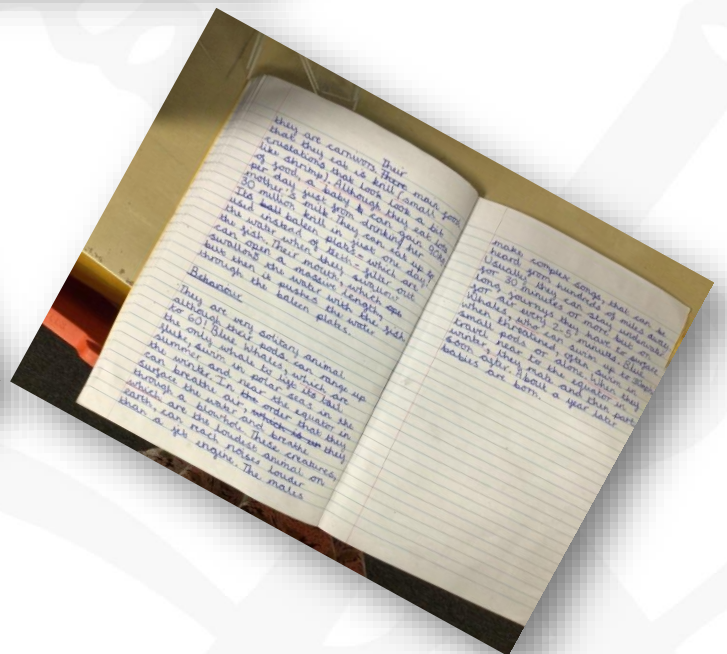 Their
they are carnivors. There main food
that they eat is krill (small
crustations that look look a bit
like shrimp). Although they eat lots
of food, a baby can gain 90kg
per day just from drinking their
mother's milk. They can eat up to
30 million krill in just on day!
Its baleen plates - which are
used instead of teeth - filter out
the fish. Their mouth, which
can open a massive length,
swallows the water with the fish
but then it pushes the water
through the baleen plates.
Behaviour
They are very solitary animal
although their pods can range up
to 60! Blue Whales, which are
the only whale to lift its tail
fluke, swim in polar seas in the
summer and near the equator in
the winter. In the order that they
can breathe air, they
surface the water and breathe
through a blowhole. These creatures,
which are the loudest animal on
earth, can reach noises louder
than a jet engine. The males
make complex songs, that can be
heard from hundreds of miles away.
Usually, they can stay underwater
for 30 minutes or more but on
long journeys they have to surface
for air every 2-5 minutes. Blue
Whales, who can swim up to
when threatened, often live in
small pods or alone. When they
travel near to the equator in
winter, they mate and then part
soon after. About a year later
babies are born.